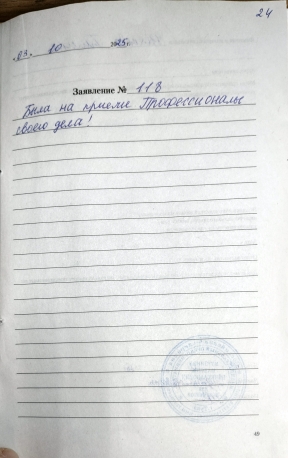 24
«03» 10 2025г.
Заявление № 118
Была на приёме Профессионалы
своего дела!
49